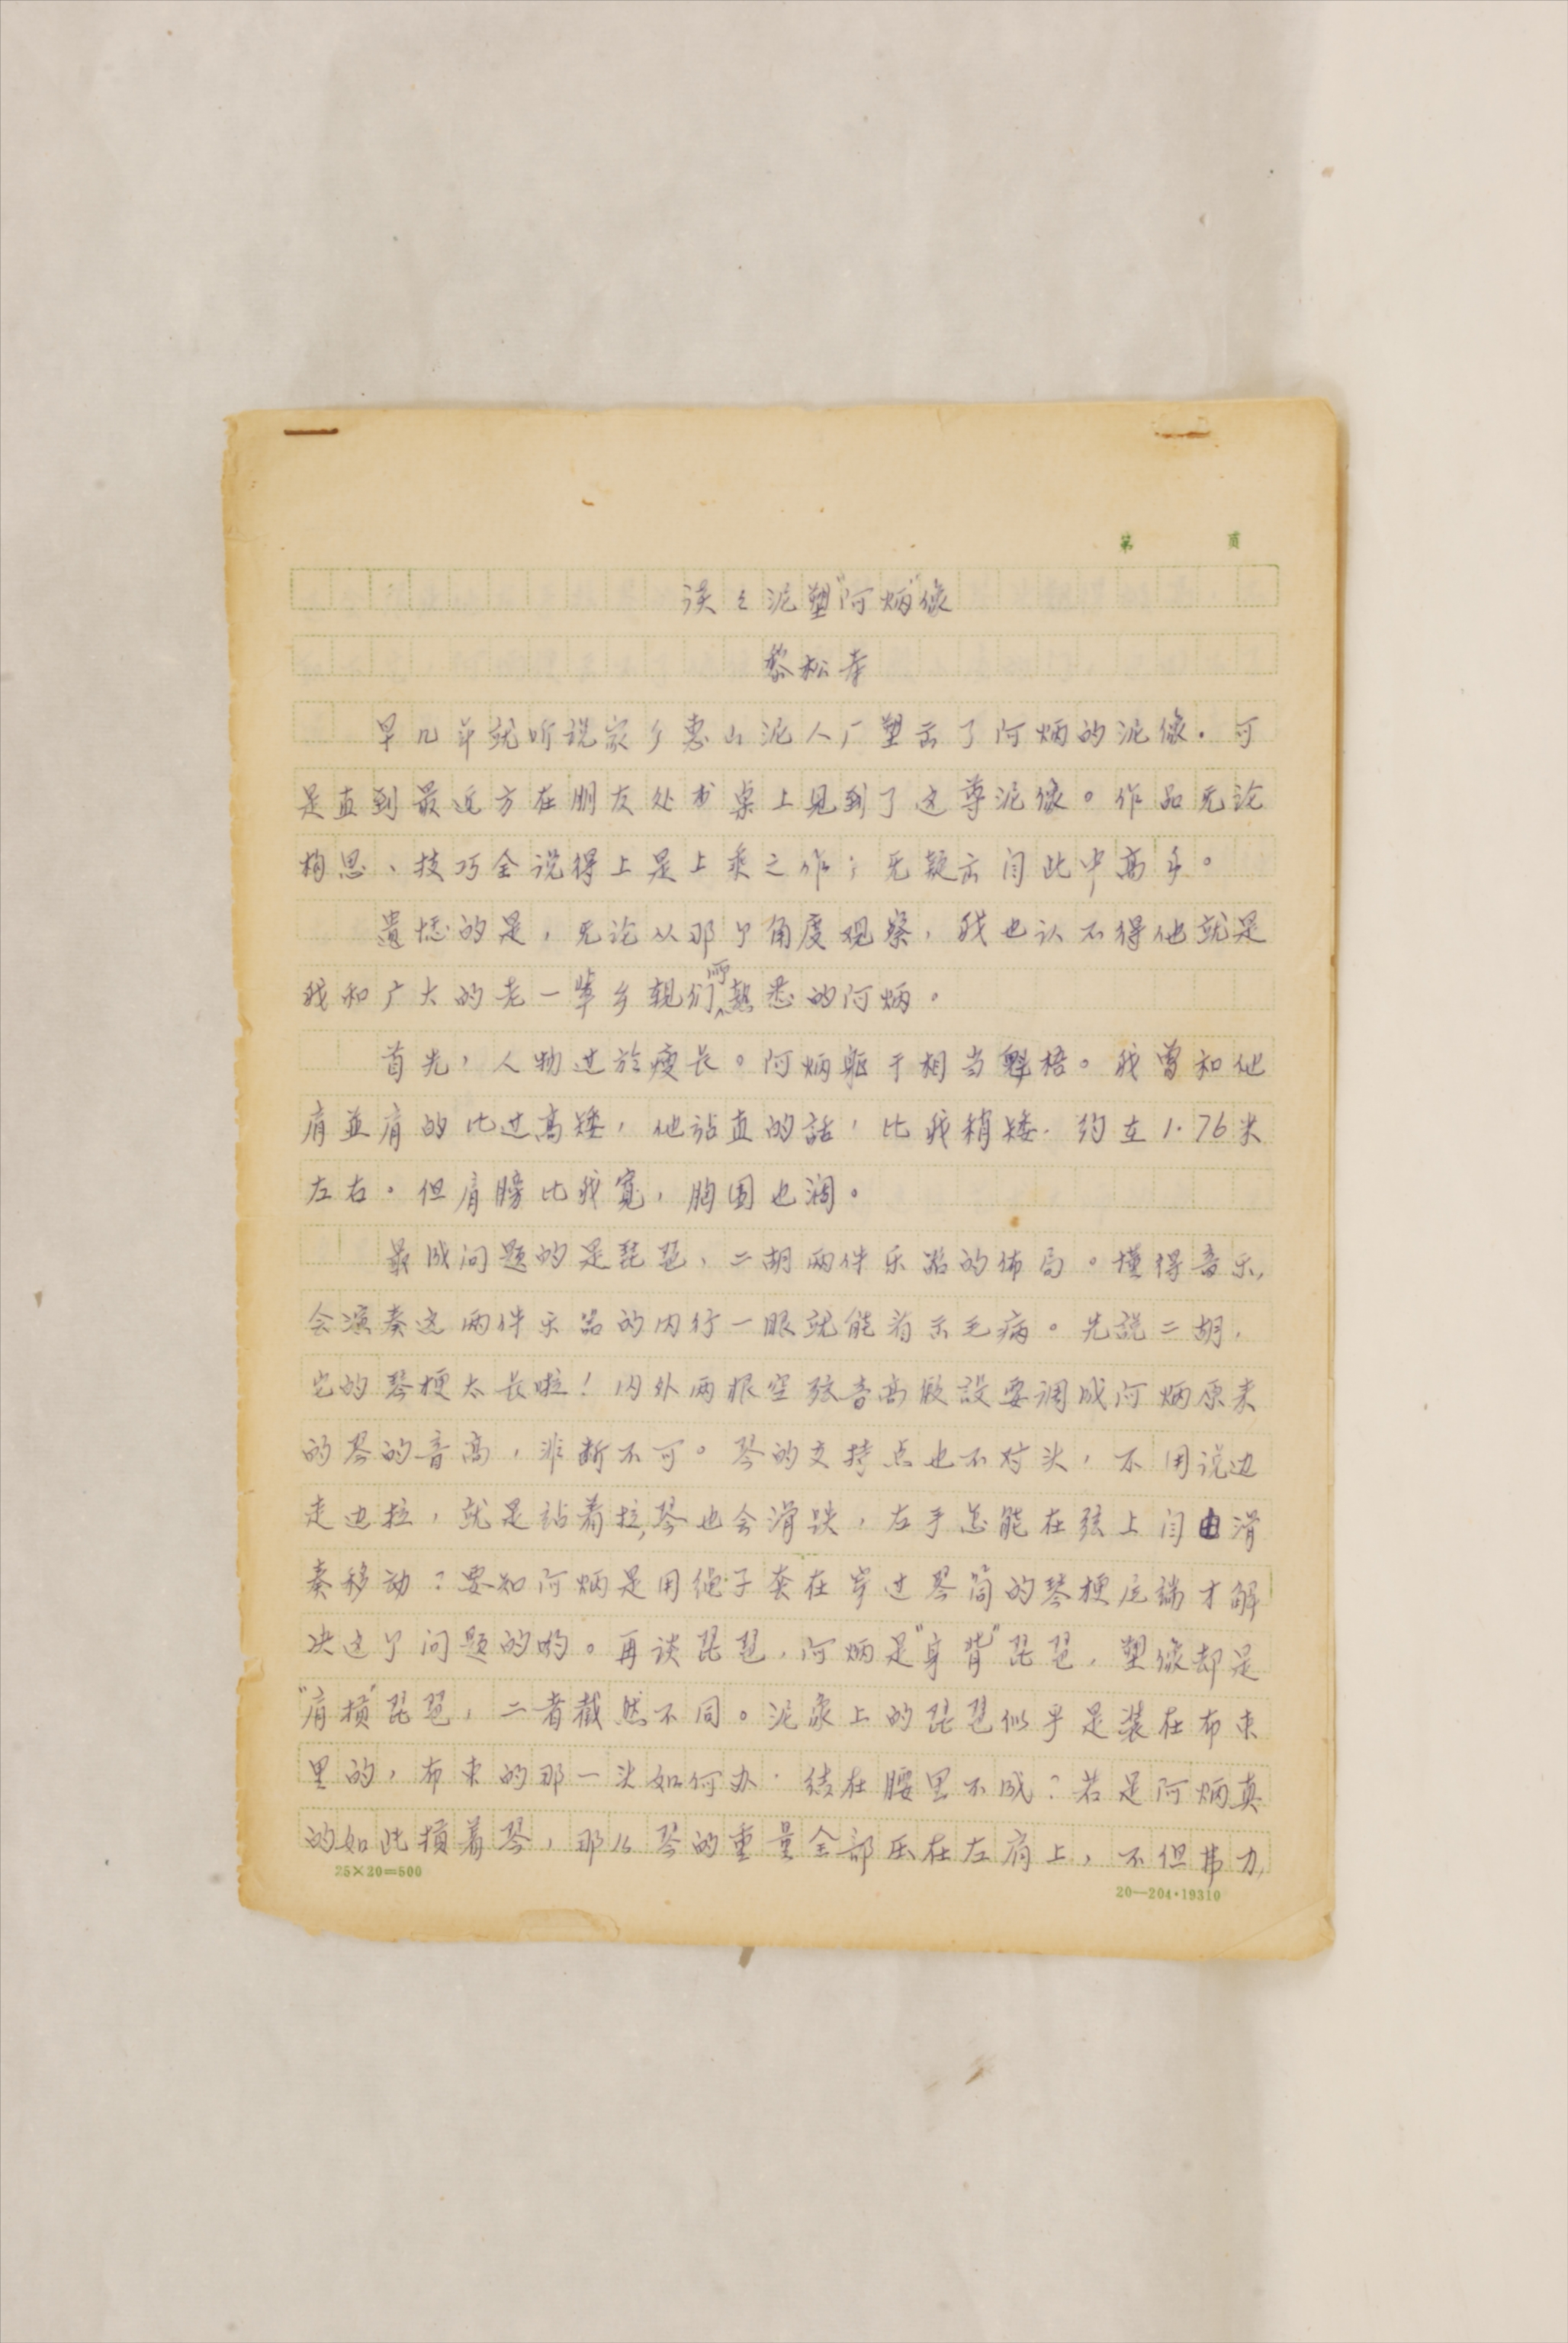 第 页
谈谈泥塑"阿炳"像
黎松寿
早几年就听说家乡惠山泥人厂塑出了阿炳的泥像。可
是直到最近方在朋友处书桌上见到了这尊泥像。作品无论
构思、技巧全说得上是上乘之作；无疑出自此中高手。
遗憾的是，无论从那个角度观察，我也认不得他就是
我和广大的老一辈乡亲们所熟悉的阿炳。
首先，人物过於瘦长。阿炳躯干相当魁梧。我曾和他
肩並肩的比过高矮，他站直的話，比我稍矮，约在1.76米
左右。但肩膀比我寬，胸围也阔。
最成问题的是琵琶、二胡两件乐器的佈局。懂得音乐，
会演奏这两件乐器的内行一眼就能看出毛病。先説二胡，
它的琴梗太长啦！内外两根空弦音高假設要调成阿炳原来
的琴的音高，非断不可。琴的支持点也不对头，不用说边
走边拉，就是站着拉，琴也会滑跌，左手怎能在弦上自由滑
奏移动？要知阿炳是用绳子套在穿过琴筒的琴梗底端才解
决这个问题的哟。再谈琵琶，阿炳是"身背"琵琶，塑像却是
"肩揹"琵琶，二者截然不同。泥象上的琵琶似乎是装在布束
里的，布束的那一头如何办，结在腰里不成？若是阿炳真
的如此揹着琴，那么琴的重量全部压在左肩上，不但费力，
25×20=500
20—204·19310